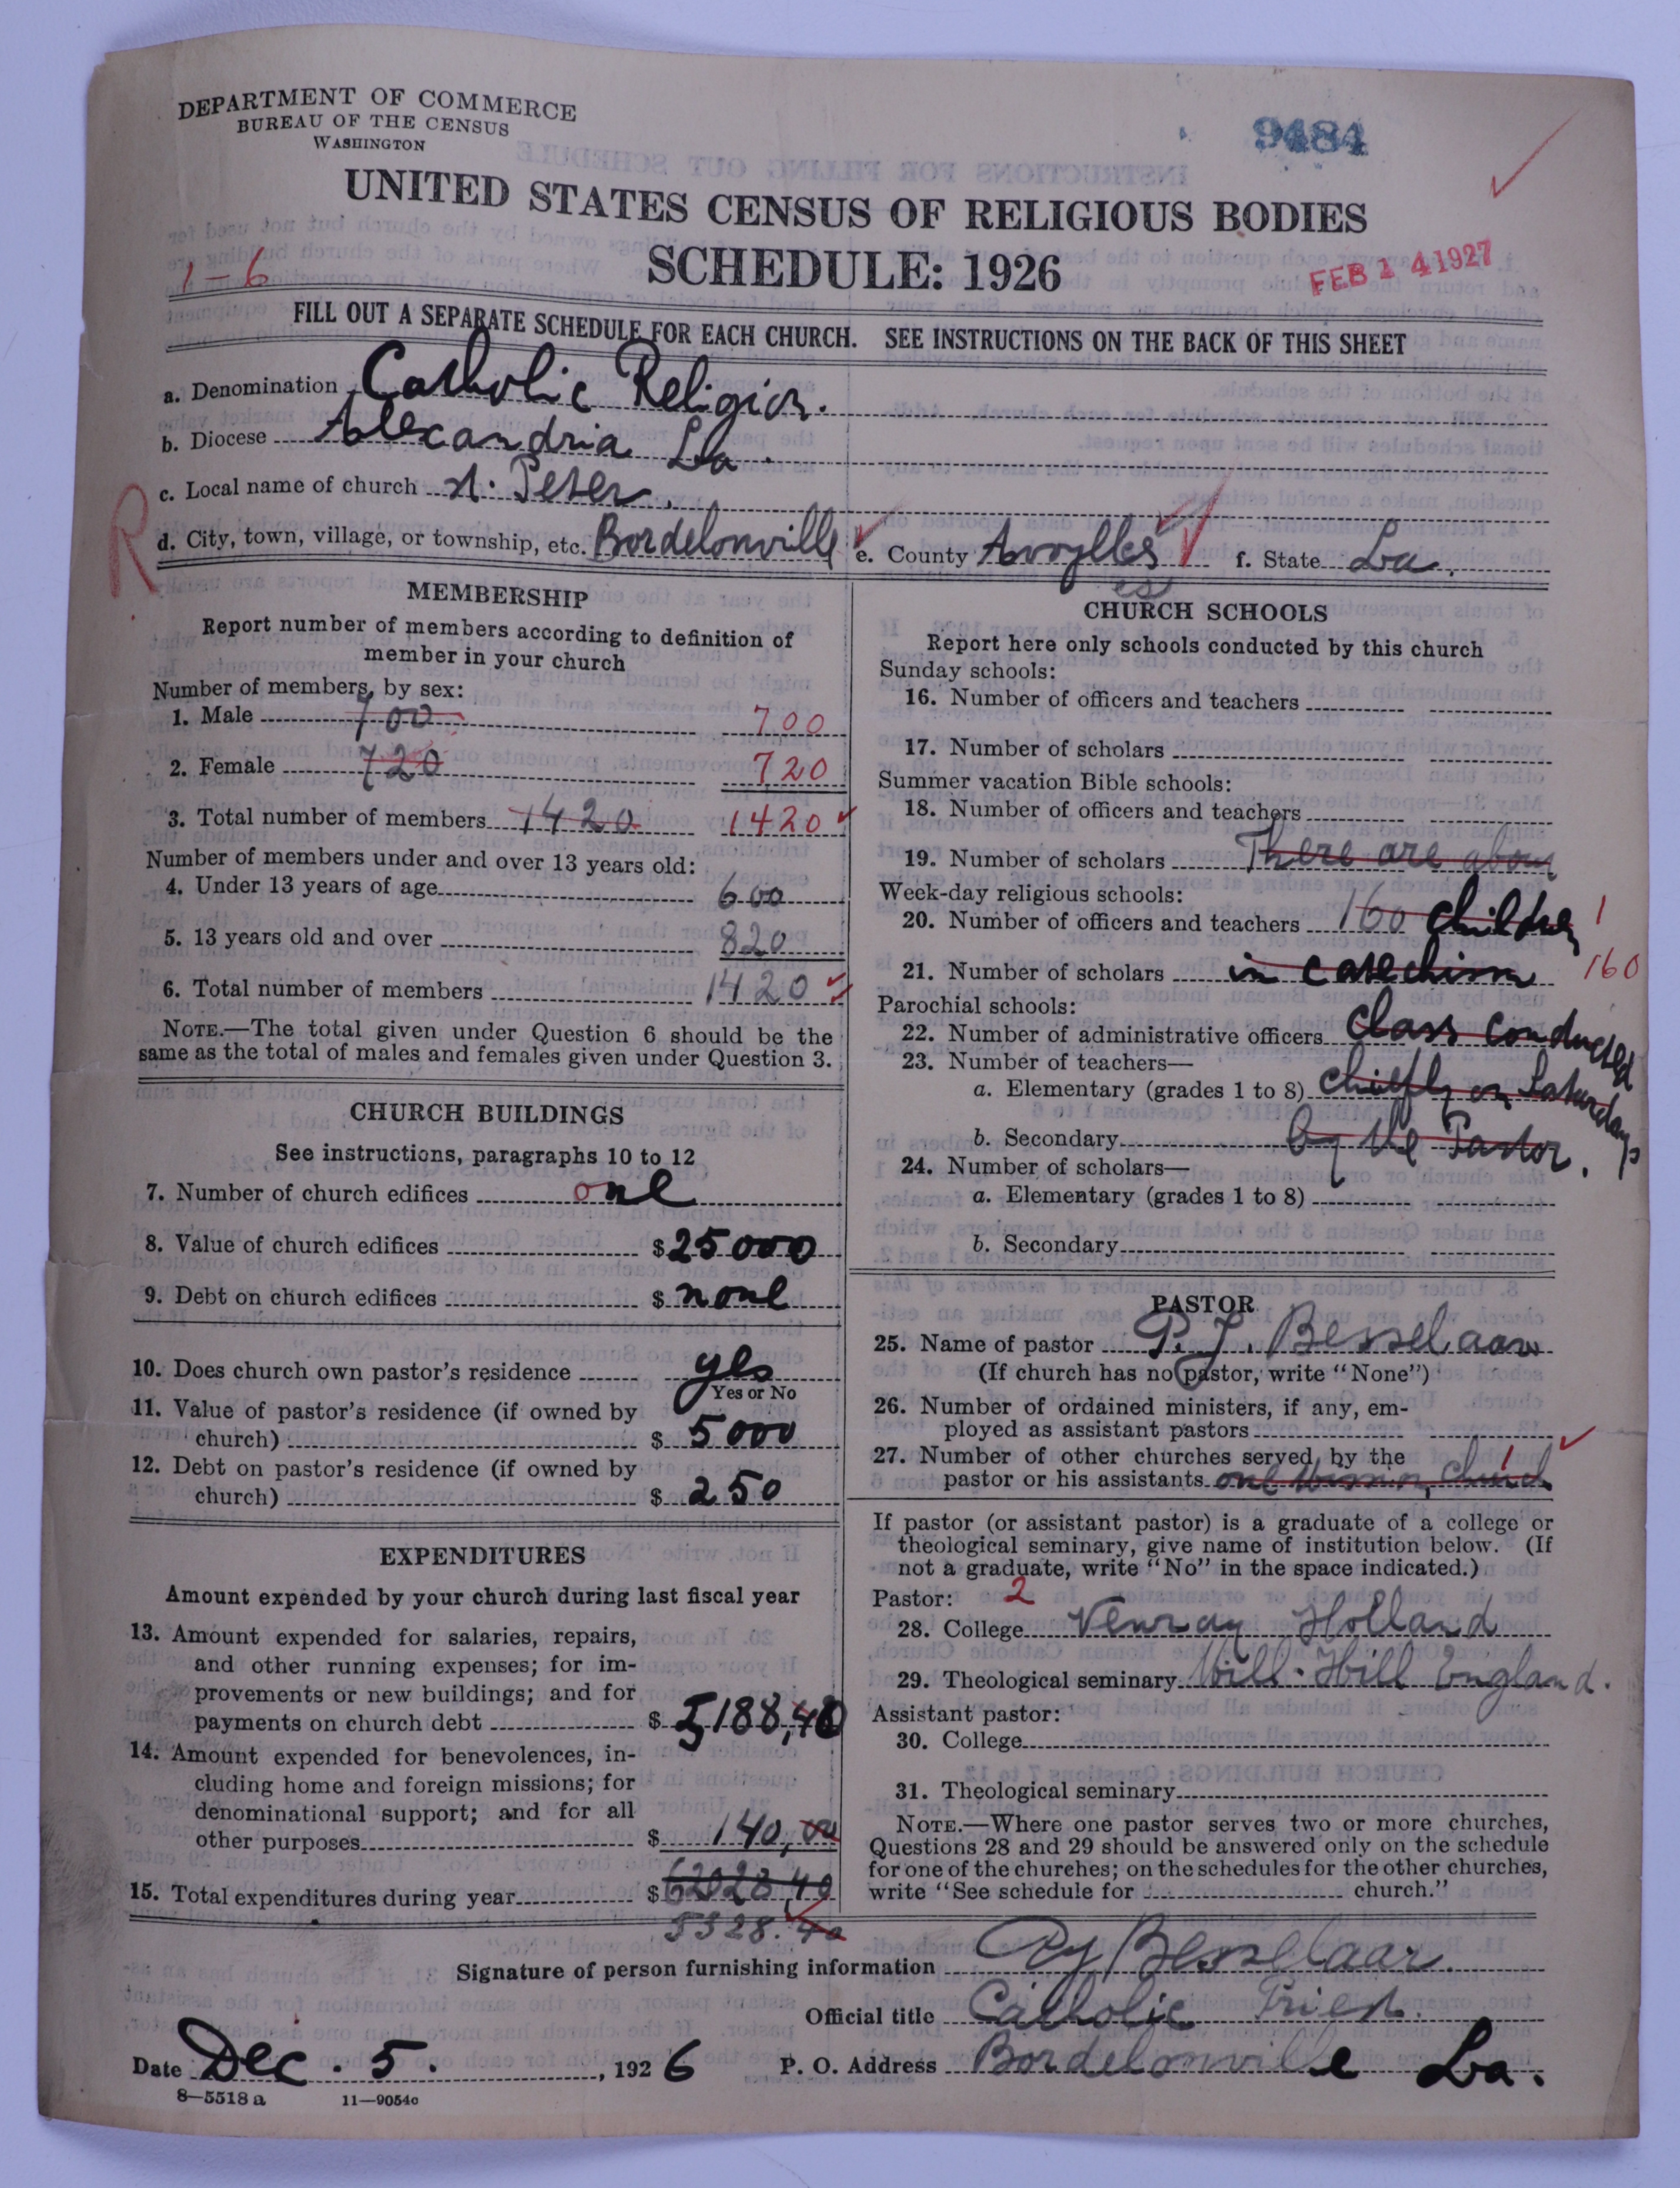 DEPARTMENT OF COMMERCE
BUREAU OF THE CENSUS
WASHINGTON
9484
UNITED STATES CENSUS OF RELIGIOUS BODIES
SCHEDULE: 1926
1-6
FEB 14 1927
FILL OUT A SEPARATE SCHEDULE FOR EACH CHURCH. SEE INSTRUCTIONS ON THE BACK OF THIS SHEET
a. Denomination Catholic Religion.
b. Diocese Alexandria La.
c. Local name of church St. Peter.
R
d. City, town, village, or township, etc. Bordelonville e. County Avoylles f. State La.
es
MEMBERSHIP
Report number of members according to definition of
member in your church
Number of members, by sex:
1. Male 700 700
2. Female 720 720
3. Total number of members 1420 1420
Number of members under and over 13 years old:
4. Under 13 years of age 600
5. 13 years old and over 820
6. Total number of members 1420
NOTE.—The total given under Question 6 should be the
same as the total of males and females given under Question 3.
CHURCH BUILDINGS
See instructions, paragraphs 10 to 12
7. Number of church edifices one
8. Value of church edifices $ 25000
9. Debt on church edifices $ none
10. Does church own pastor's residence yes
Yes or No
11. Value of pastor's residence (if owned by
church) $ 5000
12. Debt on pastor's residence (if owned by
church) $ 250
EXPENDITURES
Amount expended by your church during last fiscal year
13. Amount expended for salaries, repairs,
and other running expenses; for im-
provements or new buildings; and for
payments on church debt $ 5188,40
14. Amount expended for benevolences, in-
cluding home and foreign missions; for
denominational support; and for all
other purposes $ 140,00
15. Total expenditures during year $
5328.40
CHURCH SCHOOLS
Report here only schools conducted by this church
Sunday schools:
16. Number of officers and teachers
17. Number of scholars
Summer vacation Bible schools:
18. Number of officers and teachers
19. Number of scholars There are about
Week-day religious schools:
20. Number of officers and teachers 160 children 1
21. Number of scholars in catechism 160
Parochial schools:
22. Number of administrative officers class conducted
23. Number of teachers—
a. Elementary (grades 1 to 8) chiefly on Saturdays
b. Secondary by the Pastor.
24. Number of scholars—
a. Elementary (grades 1 to 8)
b. Secondary
PASTOR
25. Name of pastor P. J. Besselaar
(If church has no pastor, write "None")
26. Number of ordained ministers, if any, em-
ployed as assistant pastors
27. Number of other churches served by the
pastor or his assistants one mission church 1
If pastor (or assistant pastor) is a graduate of a college or
theological seminary, give name of institution below. (If
not a graduate, write "No" in the space indicated.)
Pastor: 2
28. College Venray Holland
29. Theological seminary Mill-Hill England.
Assistant pastor:
30. College
31. Theological seminary
NOTE.—Where one pastor serves two or more churches,
Questions 28 and 29 should be answered only on the schedule
for one of the churches; on the schedules for the other churches,
write "See schedule for church."
Signature of person furnishing information PJ Besselaar.
Official title Catholic Priest.
Date Dec. 5. , 1926 P. O. Address Bordelonville La.
8—5518 a 11—9054c